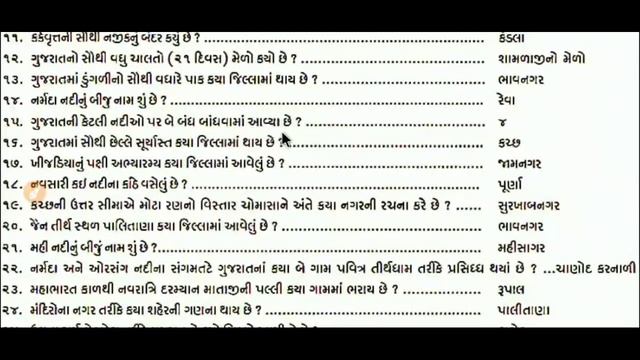 ૧૧. કર્કવૃત્તની સૌથી નજીકનું બંદર કયું છે ? .......... કંડલા
૧૨. ગુજરાતનો સૌથી વધુ ચાલતો (૨૧ દિવસ) મેળો કયો છે ? .......... શામળાજીનો મેળો
૧૩. ગુજરાતમાં ડુંગળીનો સૌથી વધારે પાક કયા જિલ્લામાં થાય છે ? .......... ભાવનગર
૧૪. નર્મદા નદીનું બીજુ નામ શું છે ? .......... રેવા
૧૫. ગુજરાતની કેટલી નદીઓ પર બે બંધ બાંધવામાં આવ્યા છે ? .......... ૪
૧૬. ગુજરાતમાં સૌથી છેલ્લે સૂર્યાસ્ત કયા જિલ્લામાં થાય છે ? .......... કચ્છ
૧૭. ખીજડિયાનું પક્ષી અભ્યારમ્ય કયા જિલ્લામાં આવેલું છે ? .......... જામનગર
૧૮. નવસારી કઇ નદીના કાંઠે વસેલું છે ? .......... પૂર્ણા
૧૯. કચ્છની ઉત્તર સીમાએ મોટા રણનો વિસ્તાર ચોમાસાને અંતે કયા નગરની રચના કરે છે ? ...... સુરખાબનગર
૨૦. જૈન તીર્થ સ્થળ પાલિતાણા કયા જિલ્લામાં આવેલું છે ? .......... ભાવનગર
૨૧. મહી નદીનું બીજું નામ શું છે ? .......... મહીસાગર
૨૨. નર્મદા અને ઓરસંગ નદીના સંગમતટે ગુજરાતનાં કયા બે ગામ પવિત્ર તીર્થધામ તરીકે પ્રસિધ્ધ થયાં છે ? ...ચાણોદ કરનાળી
૨૩. મહાભારત કાળથી નવરાત્રિ દરમ્યાન માતાજીની પલ્લી કયા ગામમાં ભરાય છે ? .......... રૂપાલ
૨૪. મંદિરોના નગર તરીકે કયા શહેરની ગણના થાય છે ? .......... પાલીતાણા